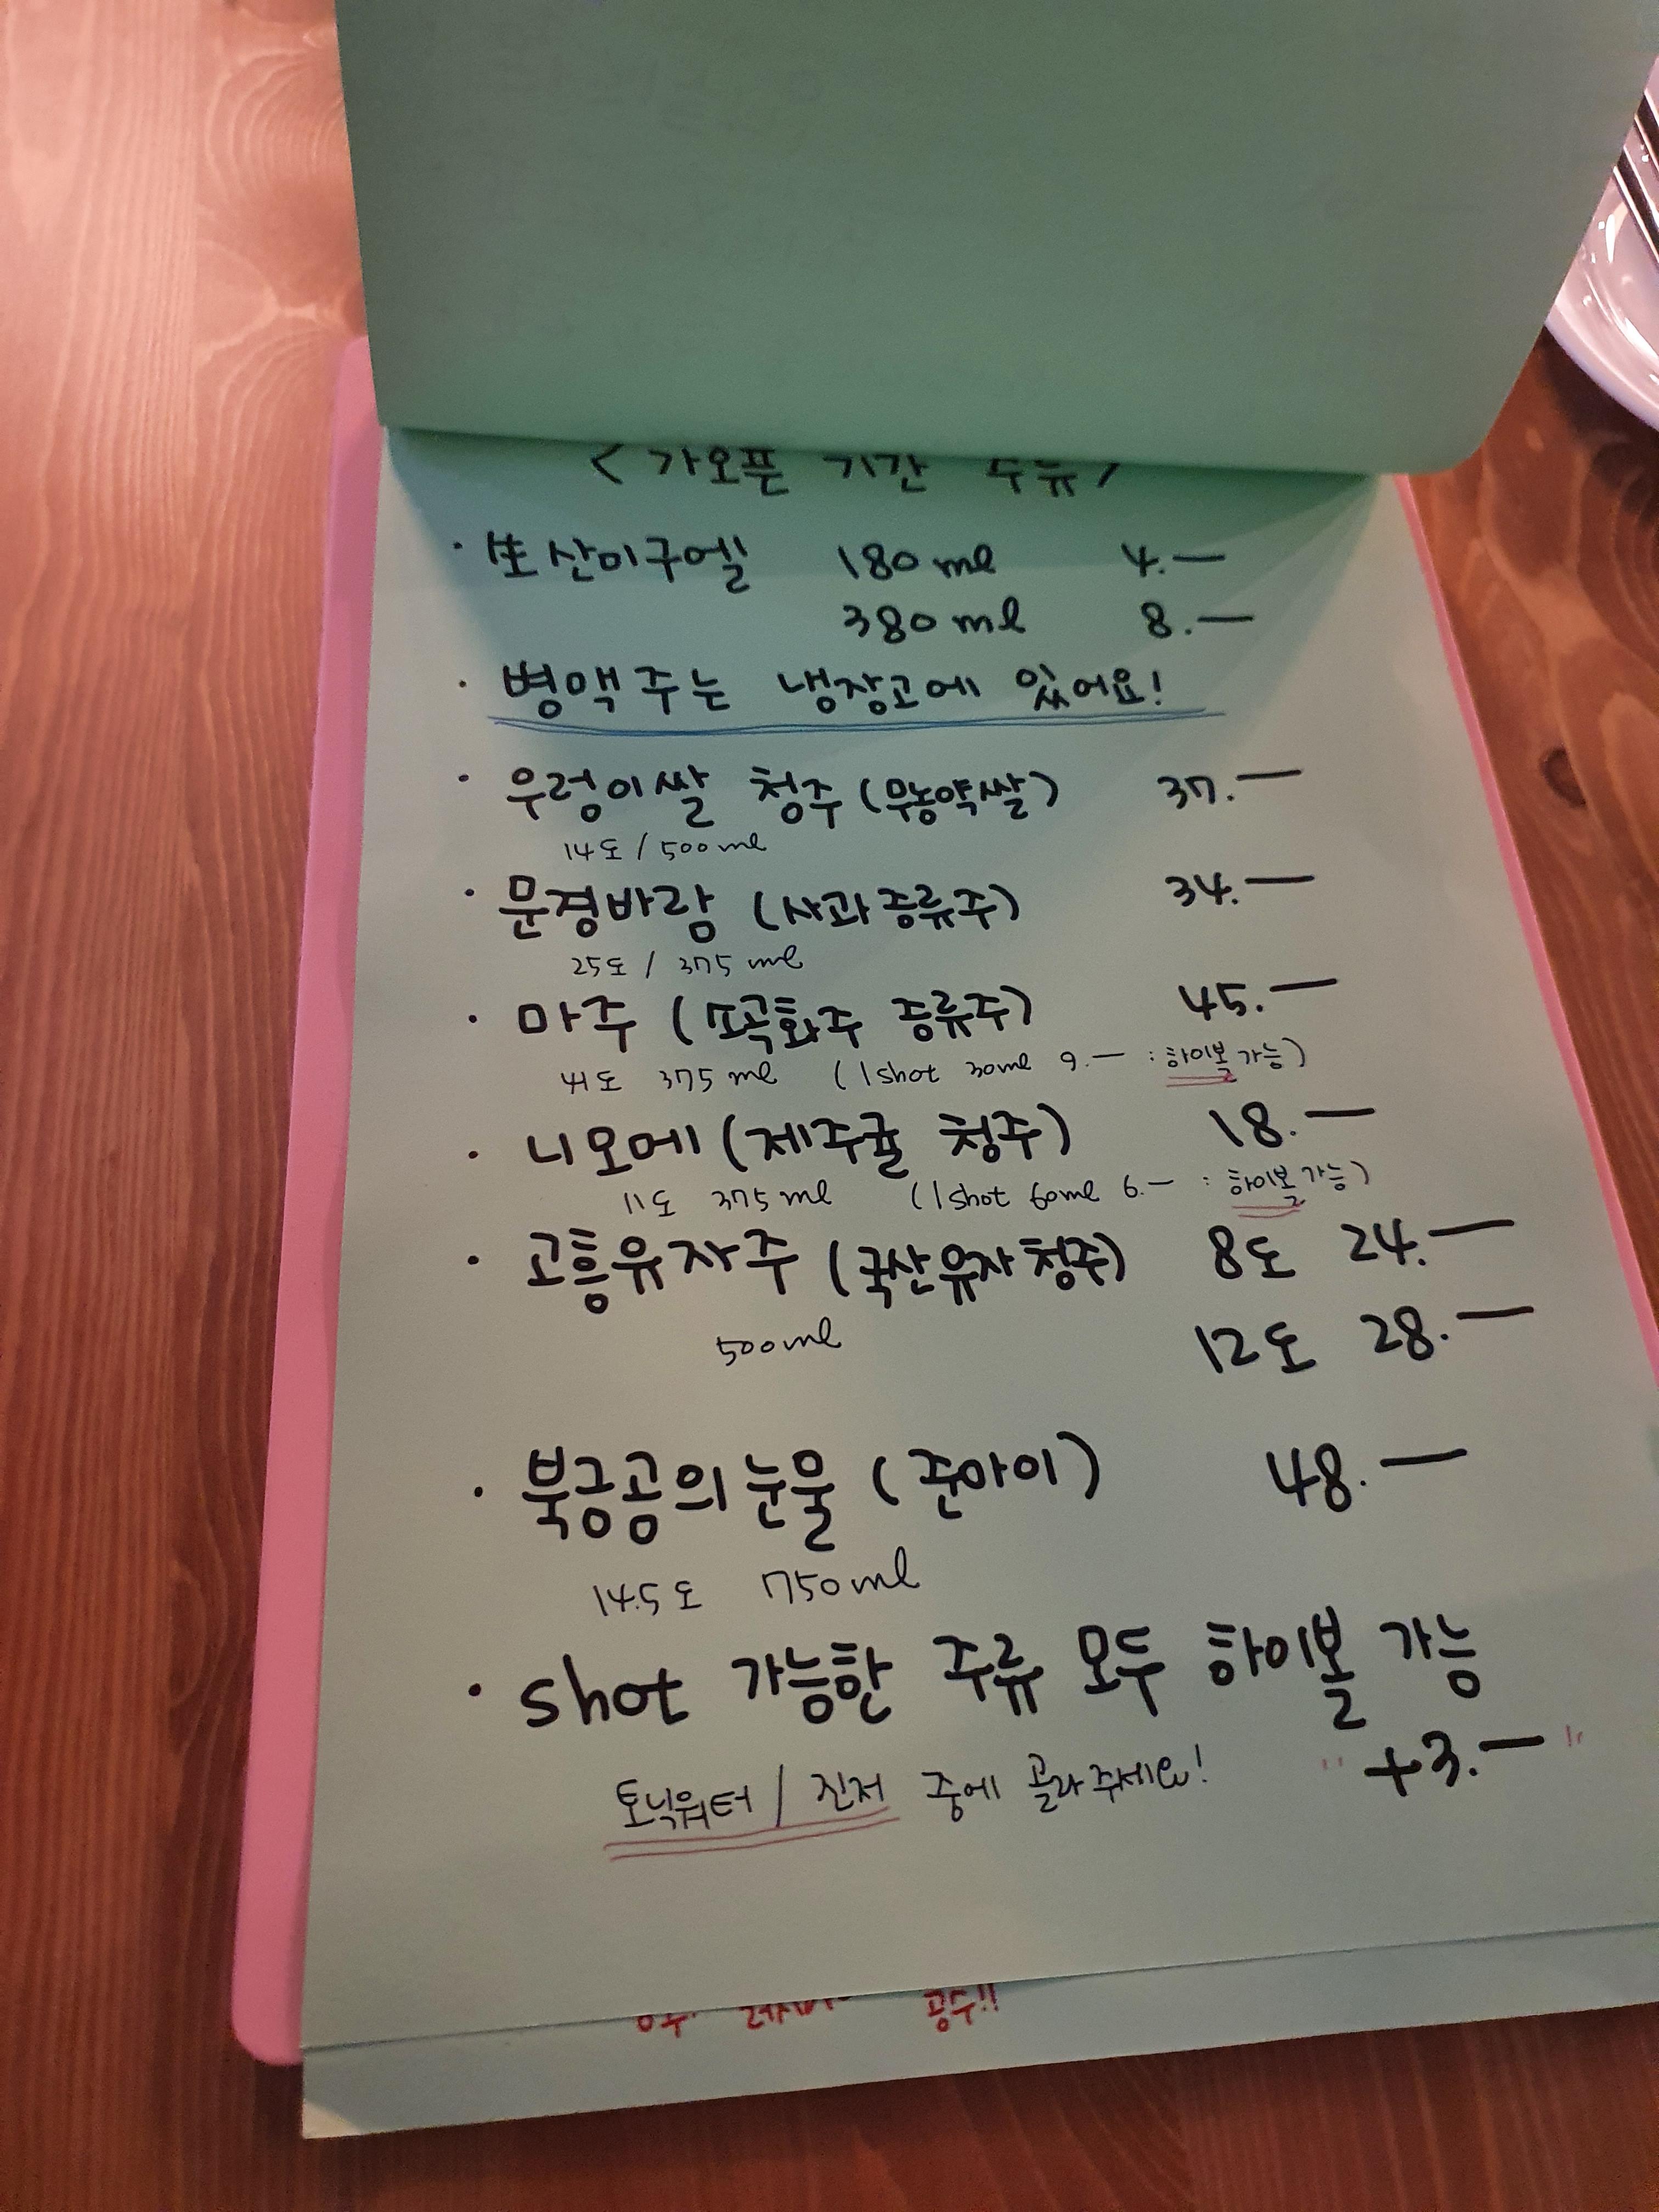 <가오픈 기간 주류>
· 生 산미구엘 180ml 4.—
380ml 8.—
· 병맥주는 냉장고에 있어요!
· 우렁이쌀 청주 (무농약쌀) 37.—
14도 / 500ml
· 문경바람 (사과증류주) 34.—
25도 / 375ml
· 마주 (오곡화주 증류주) 45.—
41도 375ml (1shot 30ml 9.— : 하이볼 가능)
· 니모메 (제주귤 청주) 18.—
11도 375ml (1shot 60ml 6.— : 하이볼 가능)
· 고흥유자주 (국산유자청주) 8도 24.—
500ml 12도 28.—
· 붉금공의눈물 (준마이) 48.—
14.5도 750ml
· shot 가능한 주류 모두 하이볼 가능
"+3.—"
토닉워터 / 진저 중에 골라주세요!
공수!!